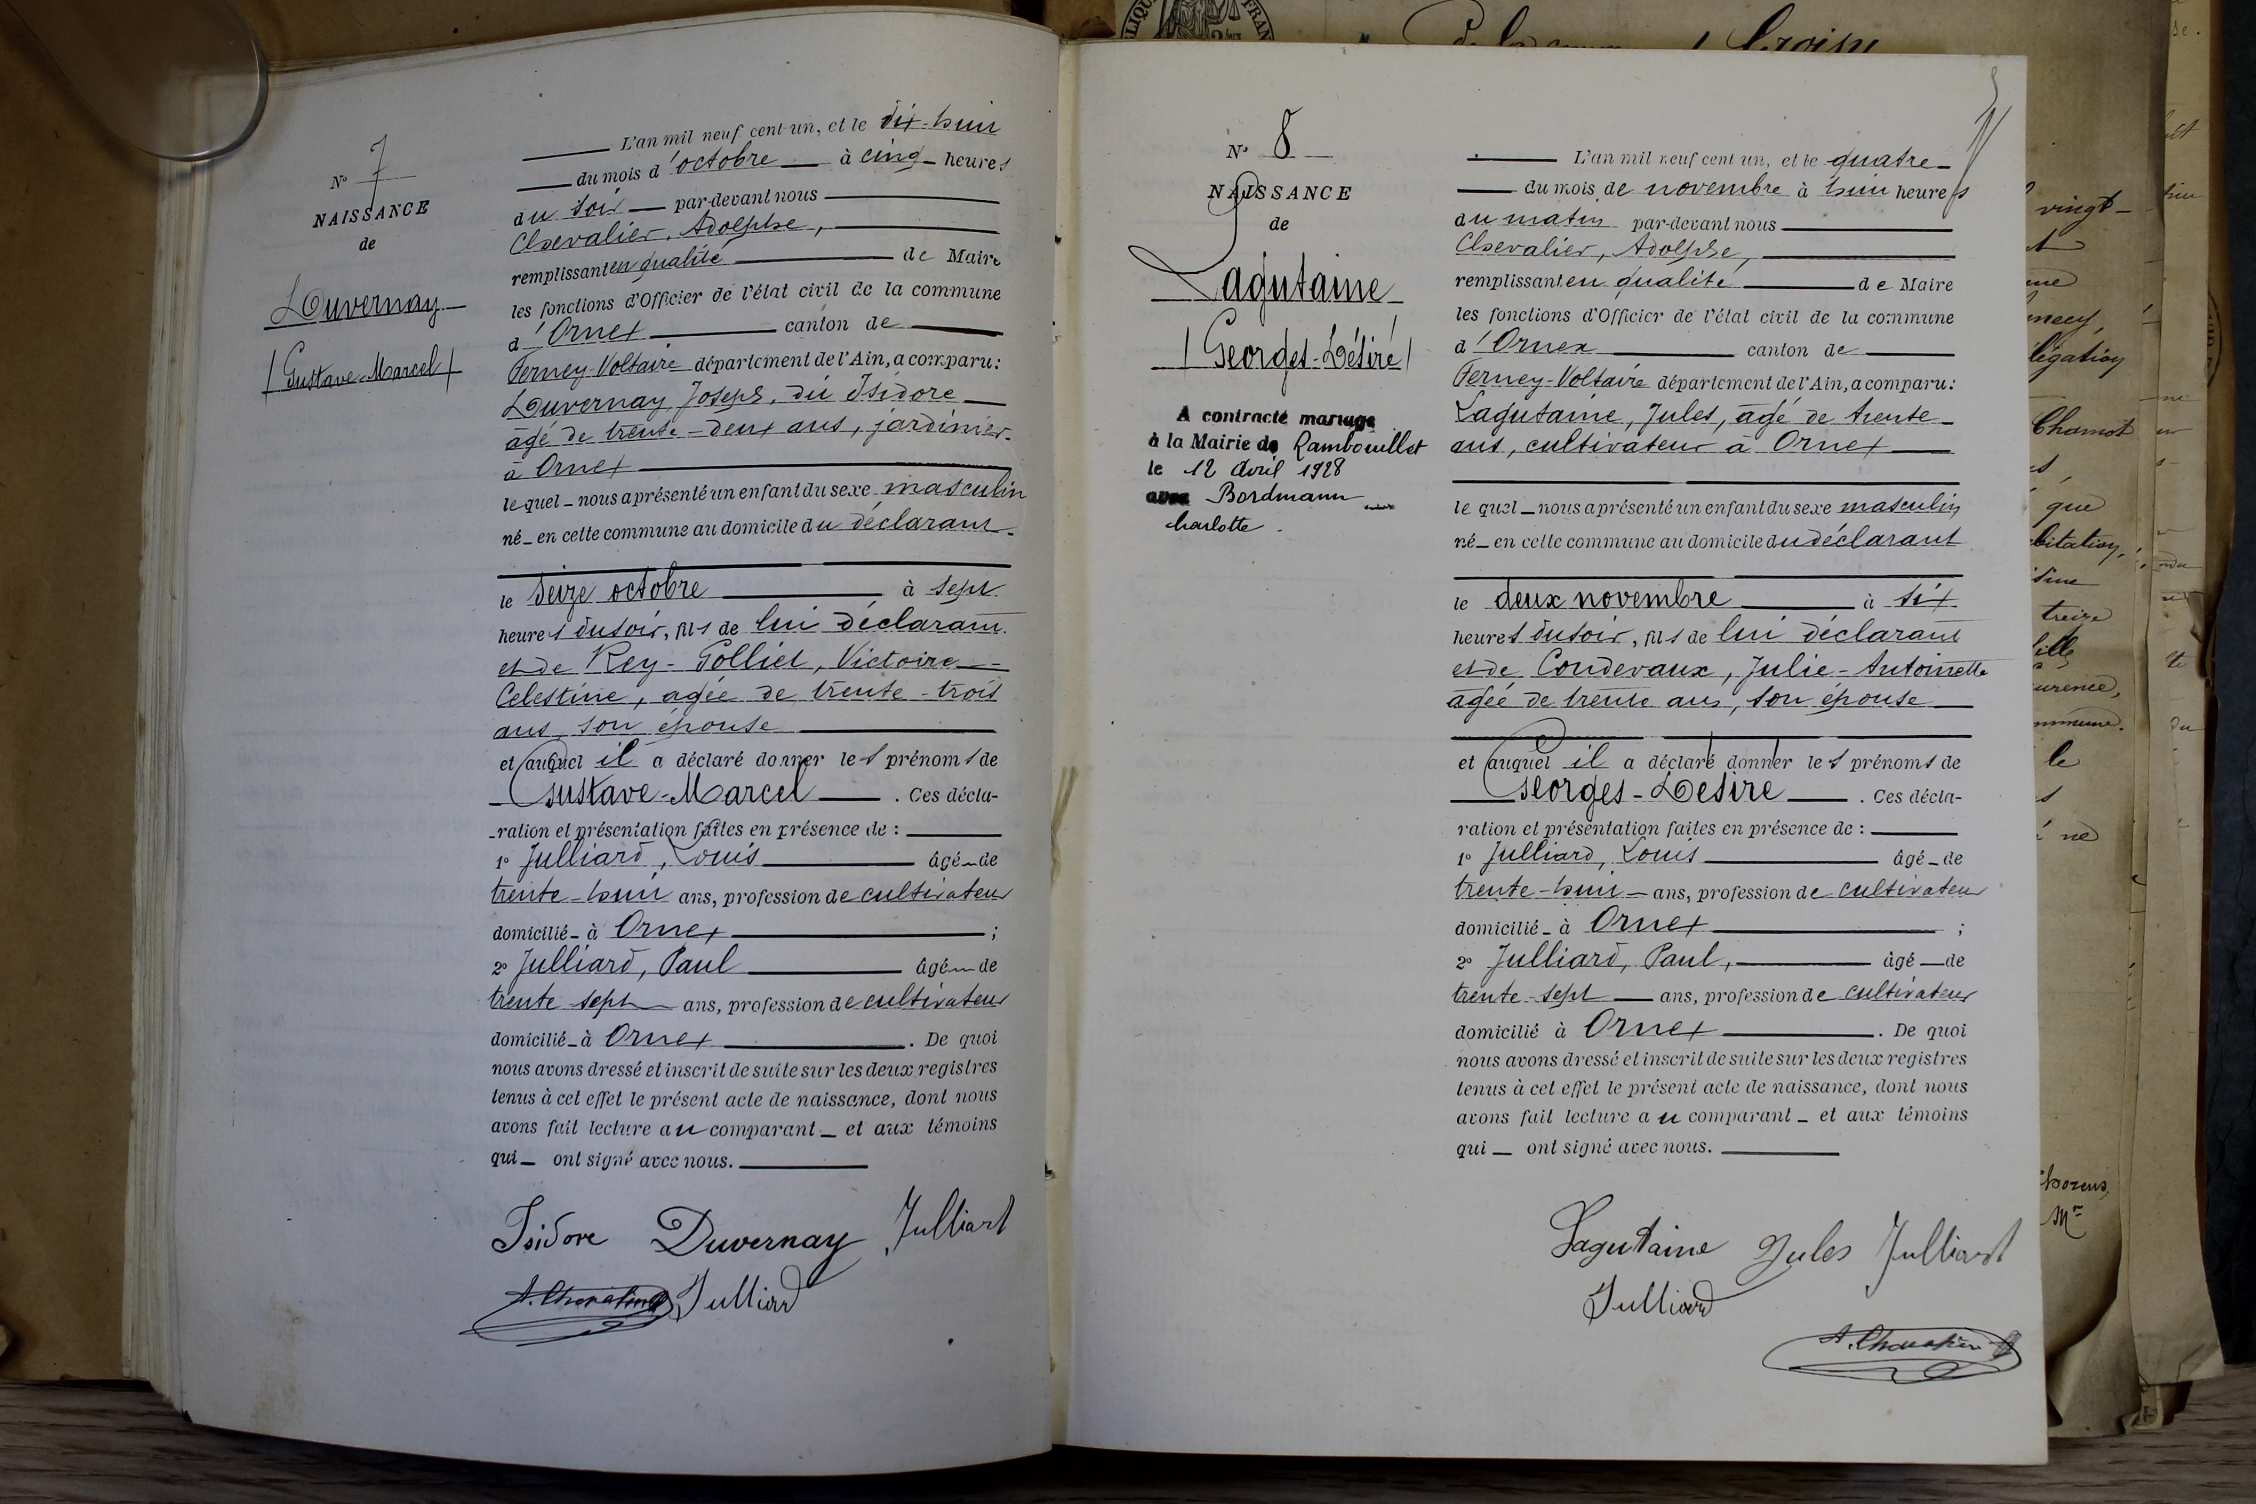 N° 7
NAISSANCE
de
Duvernay
Gustave-Marcel
L'an mil neuf cent un, et le dix-huit
du mois d'octobre à cinq heures
du soir par-devant nous
Chevalier, Adolphe,
remplissant en qualité de Maire
les fonctions d'Officier de l'état civil de la commune
d'Ornex canton de
Ferney-Voltaire département de l'Ain, a comparu:
Duvernay Joseph, dit Isidore
âgé de trente-deux ans, jardinier
à Ornex
lequel nous a présenté un enfant du sexe masculin
né en cette commune au domicile du déclarant
le seize octobre à sept
heures du soir, fils de lui déclarant
et de Rey-Golliet, Victoire
Celestine, agée de trente-trois
ans, son épouse
et auquel il a déclaré donner les prénoms de
Gustave-Marcel. Ces décla-
ration et présentation faites en présence de :
1° Julliard, Louis âgé de
trente-huit ans, profession de cultivateur
domicilié à Ornex ;
2° Julliard, Paul âgé de
trente-sept ans, profession de cultivateur
domicilié à Ornex. De quoi
nous avons dressé et inscrit de suite sur les deux registres
tenus à cet effet le présent acte de naissance, dont nous
avons fait lecture au comparant et aux témoins
qui ont signé avec nous.
Isidore Duvernay Julliard
A. Chevalier Julliard
N° 8
NAISSANCE
de
Lagutaine
Georges-Désiré
A contracté mariage
à la Mairie de Rambouillet
le 12 Avril 1928
avec Bordmann
Charlotte
L'an mil neuf cent un, et le quatre
du mois de novembre à huit heures
du matin par-devant nous
Chevalier, Adolphe,
remplissant en qualité de Maire
les fonctions d'Officier de l'état civil de la commune
d'Ornex canton de
Ferney-Voltaire département de l'Ain, a comparu:
Lagutaine, Jules, âgé de trente
ans, cultivateur à Ornex
lequel nous a présenté un enfant du sexe masculin
né en cette commune au domicile du déclarant
le deux novembre à six
heures du soir, fils de lui déclarant
et de Condevaux, Julie-Antoinette
agée de trente ans, son épouse
et auquel il a déclaré donner les prénoms de
Georges-Désiré. Ces décla-
ration et présentation faites en présence de :
1° Julliard, Louis âgé de
trente-huit ans, profession de cultivateur
domicilié à Ornex ;
2° Julliard, Paul, âgé de
trente-sept ans, profession de cultivateur
domicilié à Ornex. De quoi
nous avons dressé et inscrit de suite sur les deux registres
tenus à cet effet le présent acte de naissance, dont nous
avons fait lecture au comparant et aux témoins
qui ont signé avec nous.
Lagutaine Jules Julliard
Julliard
A. Chevalier
vingt-
Chamot
que
treize
le
ne